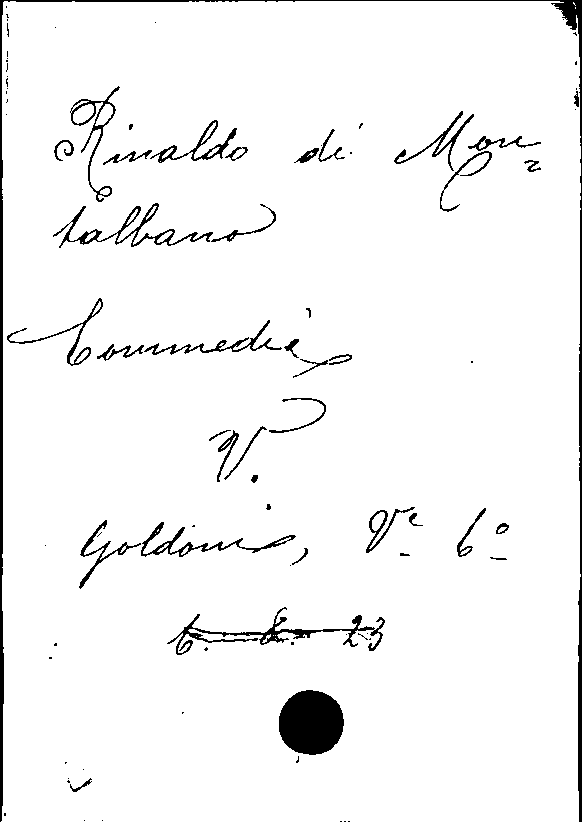 Rinaldo di Mon=
talbano
Commedia
V.
Goldoni, Ve 6º
t. E. 23